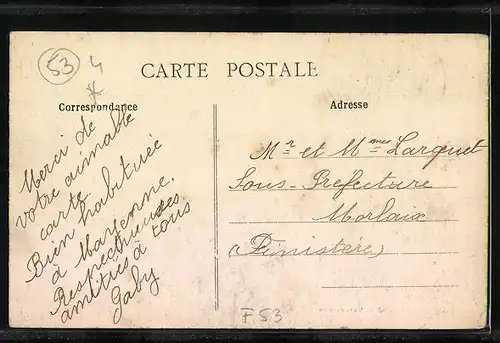 53
4
CARTE POSTALE
Correspondance
Adresse
Merci de
votre aimable
carte
Bien habituée
à Mayenne.
Respectueuses
amitiés à tous
Gaby
Mr et Mmes Larquet
Sous-Prefecture
Morlaix
(Finistère)
F53